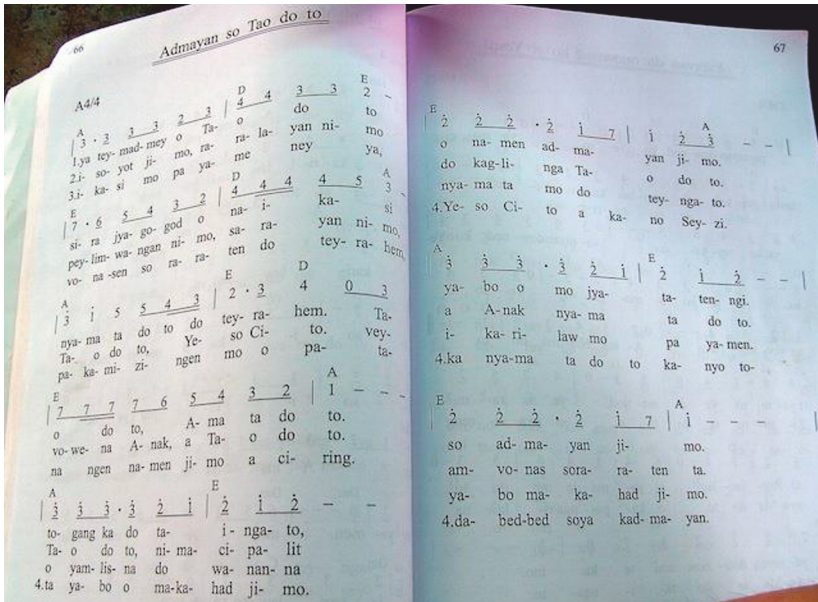 66
Admayan so Tao do to
A4/4
A D E
| 3 · 3 3 3 2 3 | 4 4 3 3 2 –
1.ya tey- mad- mey o Ta- o do to
2.i- so- yot ji- mo, ra- ra- la- yan ni- mo
3.i- ka- si mo pa ya- me ney ya,
E D A
| 7 · 6 5 4 3 2 | 4 4 4 4 5 3 –
si- ra jya- go- god o na- i- ka- si
pey- lim- wa- ngan ni- mo, sa- ra- yan ni- mo,
vo- na -sen so ra- ra- ten do tey- ra- hem,
A E D
| 3̇ 1̇ 5 5 4 3 | 2 · 3 4 0 3
nya- ma ta do to do tey- ra- hem. Ta-
Ta- o do to, Ye- so Ci- to. vey-
pa- ka- mi- zi- ngen mo o pa- ta-
E A
| 7 7 7 7 6 5 4 3 2 | 1 – – –
o do to, A- ma ta do to.
vo- we- na A- nak, a Ta- o do to.
na ngen na- men ji- mo a ci- ring.
A E
| 3̇ 3̇ 3̇ · 3̇ 2̇ 1̇ | 2̇ 1̇ 2̇ – –
to- gang ka do ta- i - nga- to,
Ta- o do to, ni- ma- ci- pa- lit
o yam- lis- na do wa- nan- na
4.ta ya- bo o ma-ka- had ji- mo.
67
E A
| 2̇ 2̇ 2̇ · 2̇ 1̇ 7 | 1̇ 2̇ 3̇ – – |
o na- men ad- ma- yan ji- mo.
do kag-li- nga Ta- o do to.
nya- ma ta mo do tey- nga- to.
4.Ye- so Ci- to a ka- no Sey- zi.
A E
| 3̇ 3̇ 3̇ · 3̇ 2̇ 1̇ | 2̇ 1̇ 2̇ – – |
ya- bo o mo jya- ta- ten- ngi.
a A-nak nya- ma ta do to.
i- ka- ri- law mo pa ya- men.
4.ka nya-ma ta do to ka- nyo to-
E A
| 2̇ 2̇ 2̇ · 2̇ 1̇ 7 | 1̇ – – – |
so ad- ma- yan ji- mo.
am- vo- nas sora- ra- ten ta.
ya- bo ma- ka- had ji- mo.
4.da- bed-bed soya kad- ma- yan.